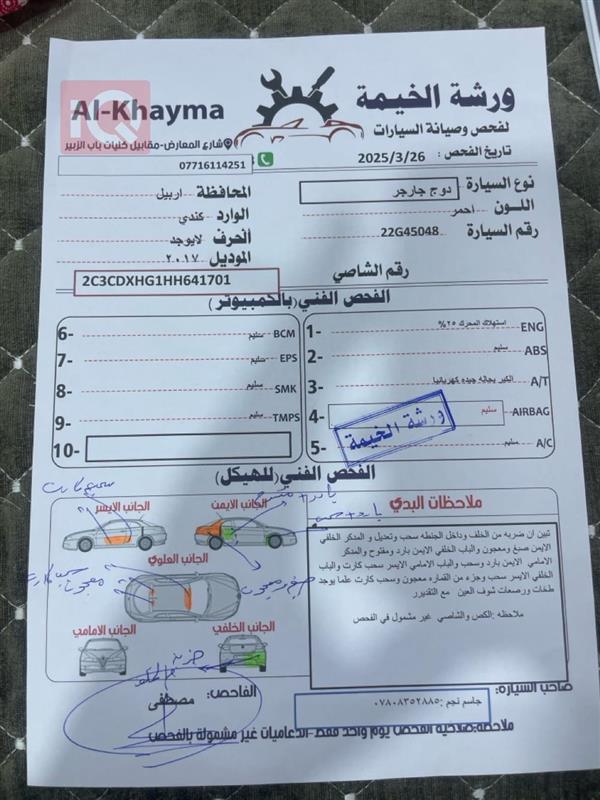 IQ
Al-Khayma
ورشة الخيمة
لفحص وصيانة السيارات
شارع المعارض-مقابيل كنيات باب الزبير
تاريخ الفحص : 2025/3/26
07716114251
نوع السيارة : دوج جارجر
المحافظة : اربيل
اللون : احمر
الوارد : كندي
رقم السيارة : 22G45048
الحرف : لايوجد
الموديل : ٢٠١٧
رقم الشاصي 2C3CDXHG1HH641701
الفحص الفني (بالكمبيوتر)
1- استهلاك المحرك ٢٥% ENG
2- سليم ABS
3- الكير بحاله جيده كهربائيا A/T
4- سليم AIRBAG
5- سليم A/C
6- سليم BCM
7- سليم EPS
8- سليم SMK
9- سليم TMPS
10-
ورشة الخيمة
الفحص الفني (للهيكل)
ملاحظات البدي
تبين ان ضربه من الخلف وداخل الجنطه سحب وتعديل و المدكر الخلفي
الايمن صبغ ومعجون والباب الخلفي الايمن بارد ومفتوح والمدكر
الامامي الايمن بارد وسحب والباب الامامي الايسر سحب كارت والباب
الخلفي الايسر سحب وجزء من القماره معجون وسحب كارت علما يوجد
طخات ورصعات شوف العين مع التقديرر
ملاحظه :الكص والشاصي غير مشمول في الفحص
الجانب الايمن
الجانب الايسر
الجانب العلوي
الجانب الخلفي
الجانب الامامي
صبغ ومعجون
صاحب السياره:
جاسم نجم :٠٧٨٠٨٣٥٢٨٨٥
الفاحص: مصطفى
ملاحظة:صلاحية الفحص يوم واحد فقط-الدعاميات غير مشمولة بالفحص